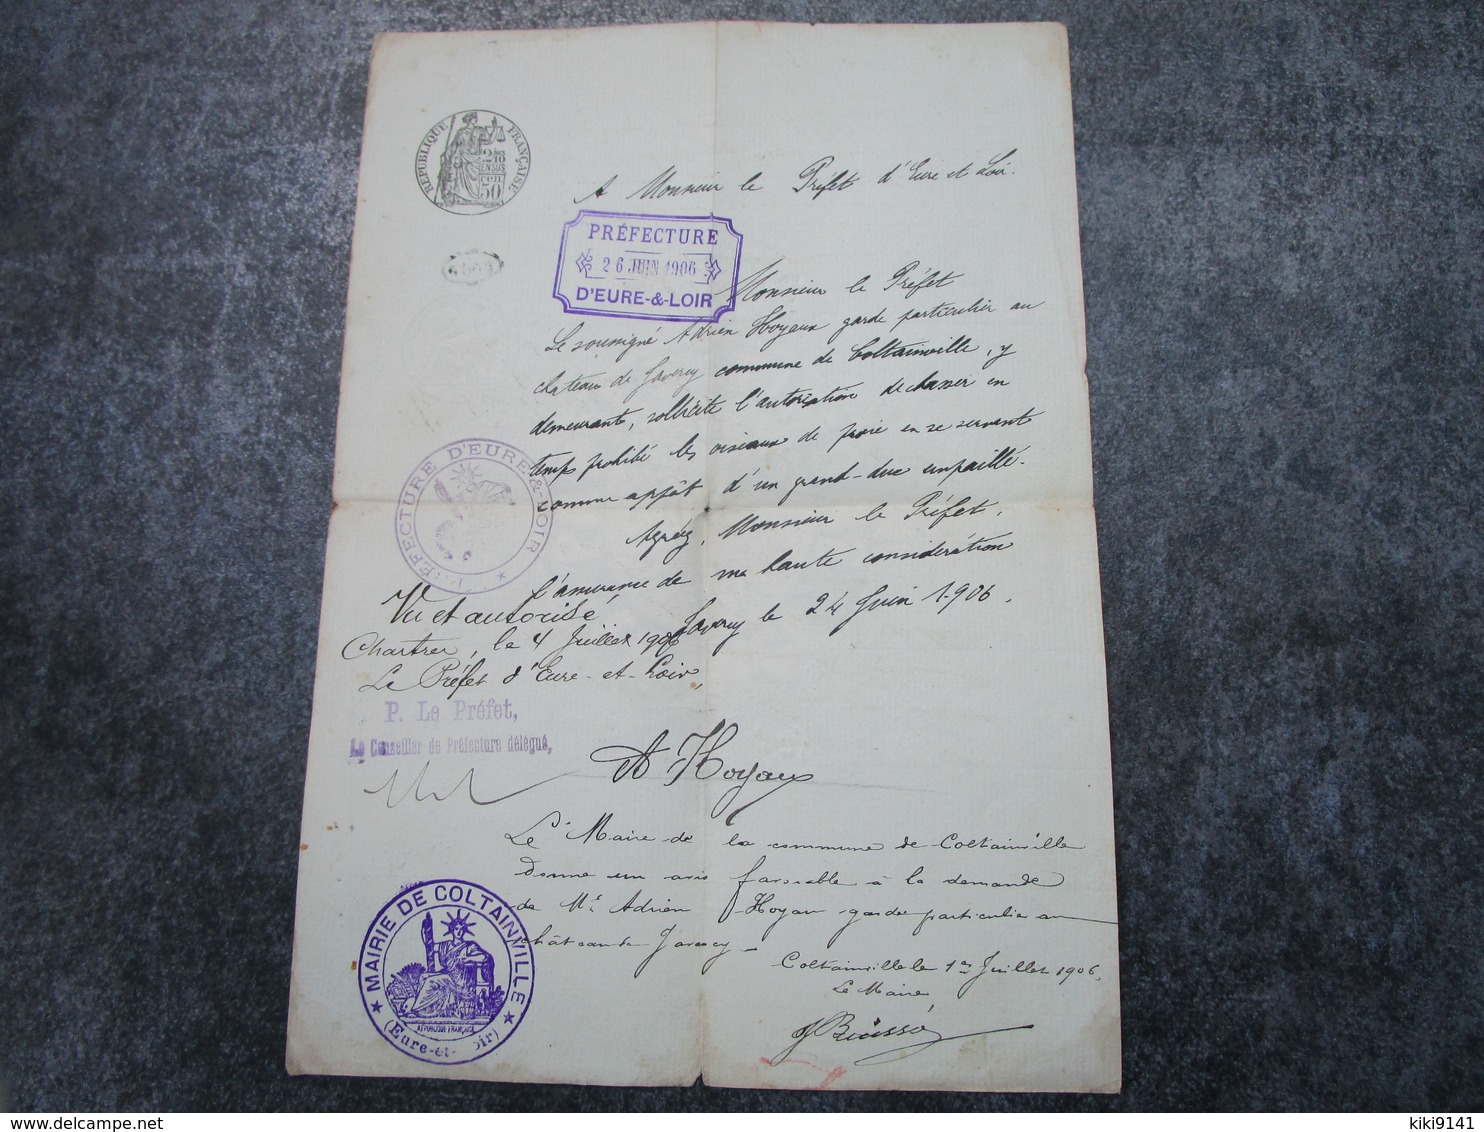 RÉPUBLIQUE FRANÇAISE
2/10
EN SUS
50
A Monsieur le Préfet d'Eure et Loir.
PRÉFECTURE
26 JUIN 1906
D'EURE-&-LOIR
Monsieur le Préfet
Le soussigné Adrien Hoyaux garde particulier au
chateau de Javercy commune de Coltainville, y
demeurant, sollicite l'autorisation de chasser en
temps prohibé les oiseaux de proie en se servant
comme appât d'un grand-duc empaillé.
Agréez, Monsieur le Préfet,
l'assurance de ma haute considération
Javercy le 24 Juin 1906.
PRÉFECTURE D'EURE-&-LOIR
Vu et autorisé
Chartres, le 4 Juillet 1906
Le Préfet d'Eure-et-Loir,
P. Le Préfet,
Le Conseiller de Préfecture délégué,
A Hoyaux
Le Maire de la commune de Coltainville
Donne un avis favorable à la demande
de Mr. Adrien Hoyau garde particulier au
château de Javercy
Coltainville le 1er Juillet 1906
Le Maire,
MAIRIE DE COLTAINVILLE
RÉPUBLIQUE FRANÇAISE
(Eure-et- oir)
delcampe.net
kiki9141